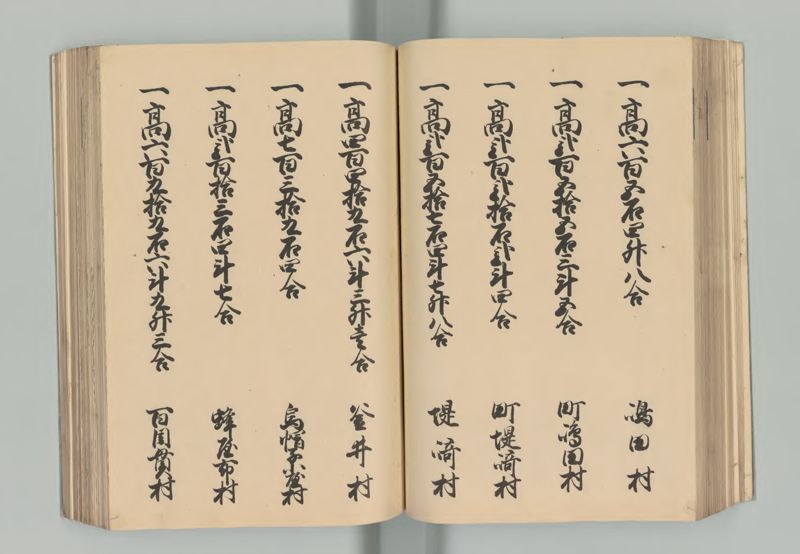 一高六百五石四升八合 嶋田村
一高弐百五拾五石三斗五合 町嶋田村
一高弐百弐拾石弐斗四合 町堤崎村
一高弐百五拾七石四斗七升八合 堤崎村
一高四百四拾九石六斗三升壱合 釜井村
一高七百三拾九石四合 烏帽子形村
一高弐百拾三石四斗七合 蜂屋布村
一高六百九拾九石六斗九升三合 百間貫村